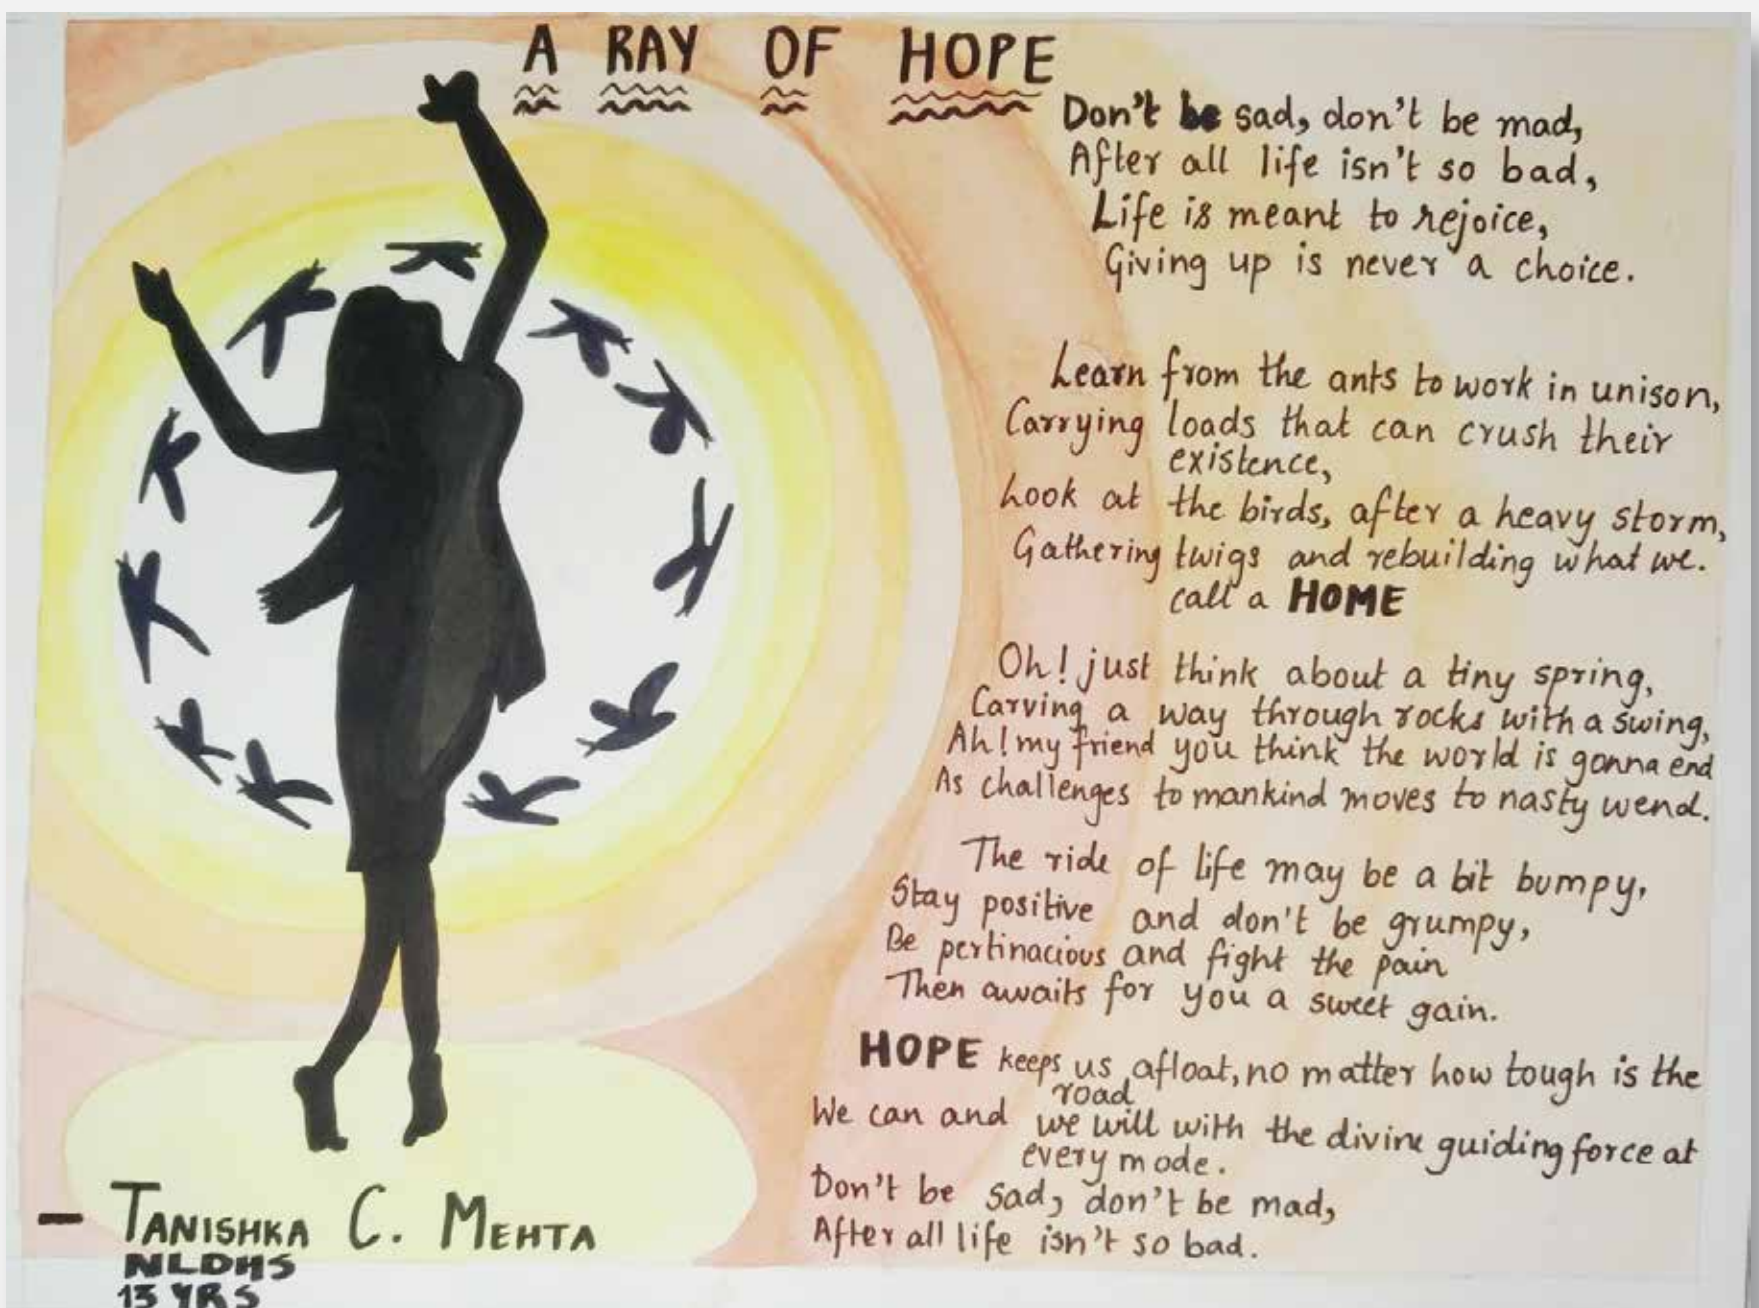 A RAY OF HOPE
Don't be sad, don't be mad,
After all life isn't so bad,
Life is meant to rejoice,
Giving up is never a choice.
Learn from the ants to work in unison,
Carrying loads that can crush their
existence,
Look at the birds, after a heavy storm,
Gathering twigs and rebuilding what we.
call a HOME
Oh! just think about a tiny spring,
Carving a way through rocks with a swing,
Ah! my friend you think the world is gonna end
As challenges to mankind moves to nasty wend.
The ride of life may be a bit bumpy,
Stay positive and don't be grumpy,
Be pertinacious and fight the pain
Then awaits for you a sweet gain.
HOPE keeps us afloat, no matter how tough is the
road
We can and we will with the divine guiding force at
every mode.
Don't be sad, don't be mad,
After all life isn't so bad.
- TANISHKA C. MEHTA
NLDHS
13 YRS